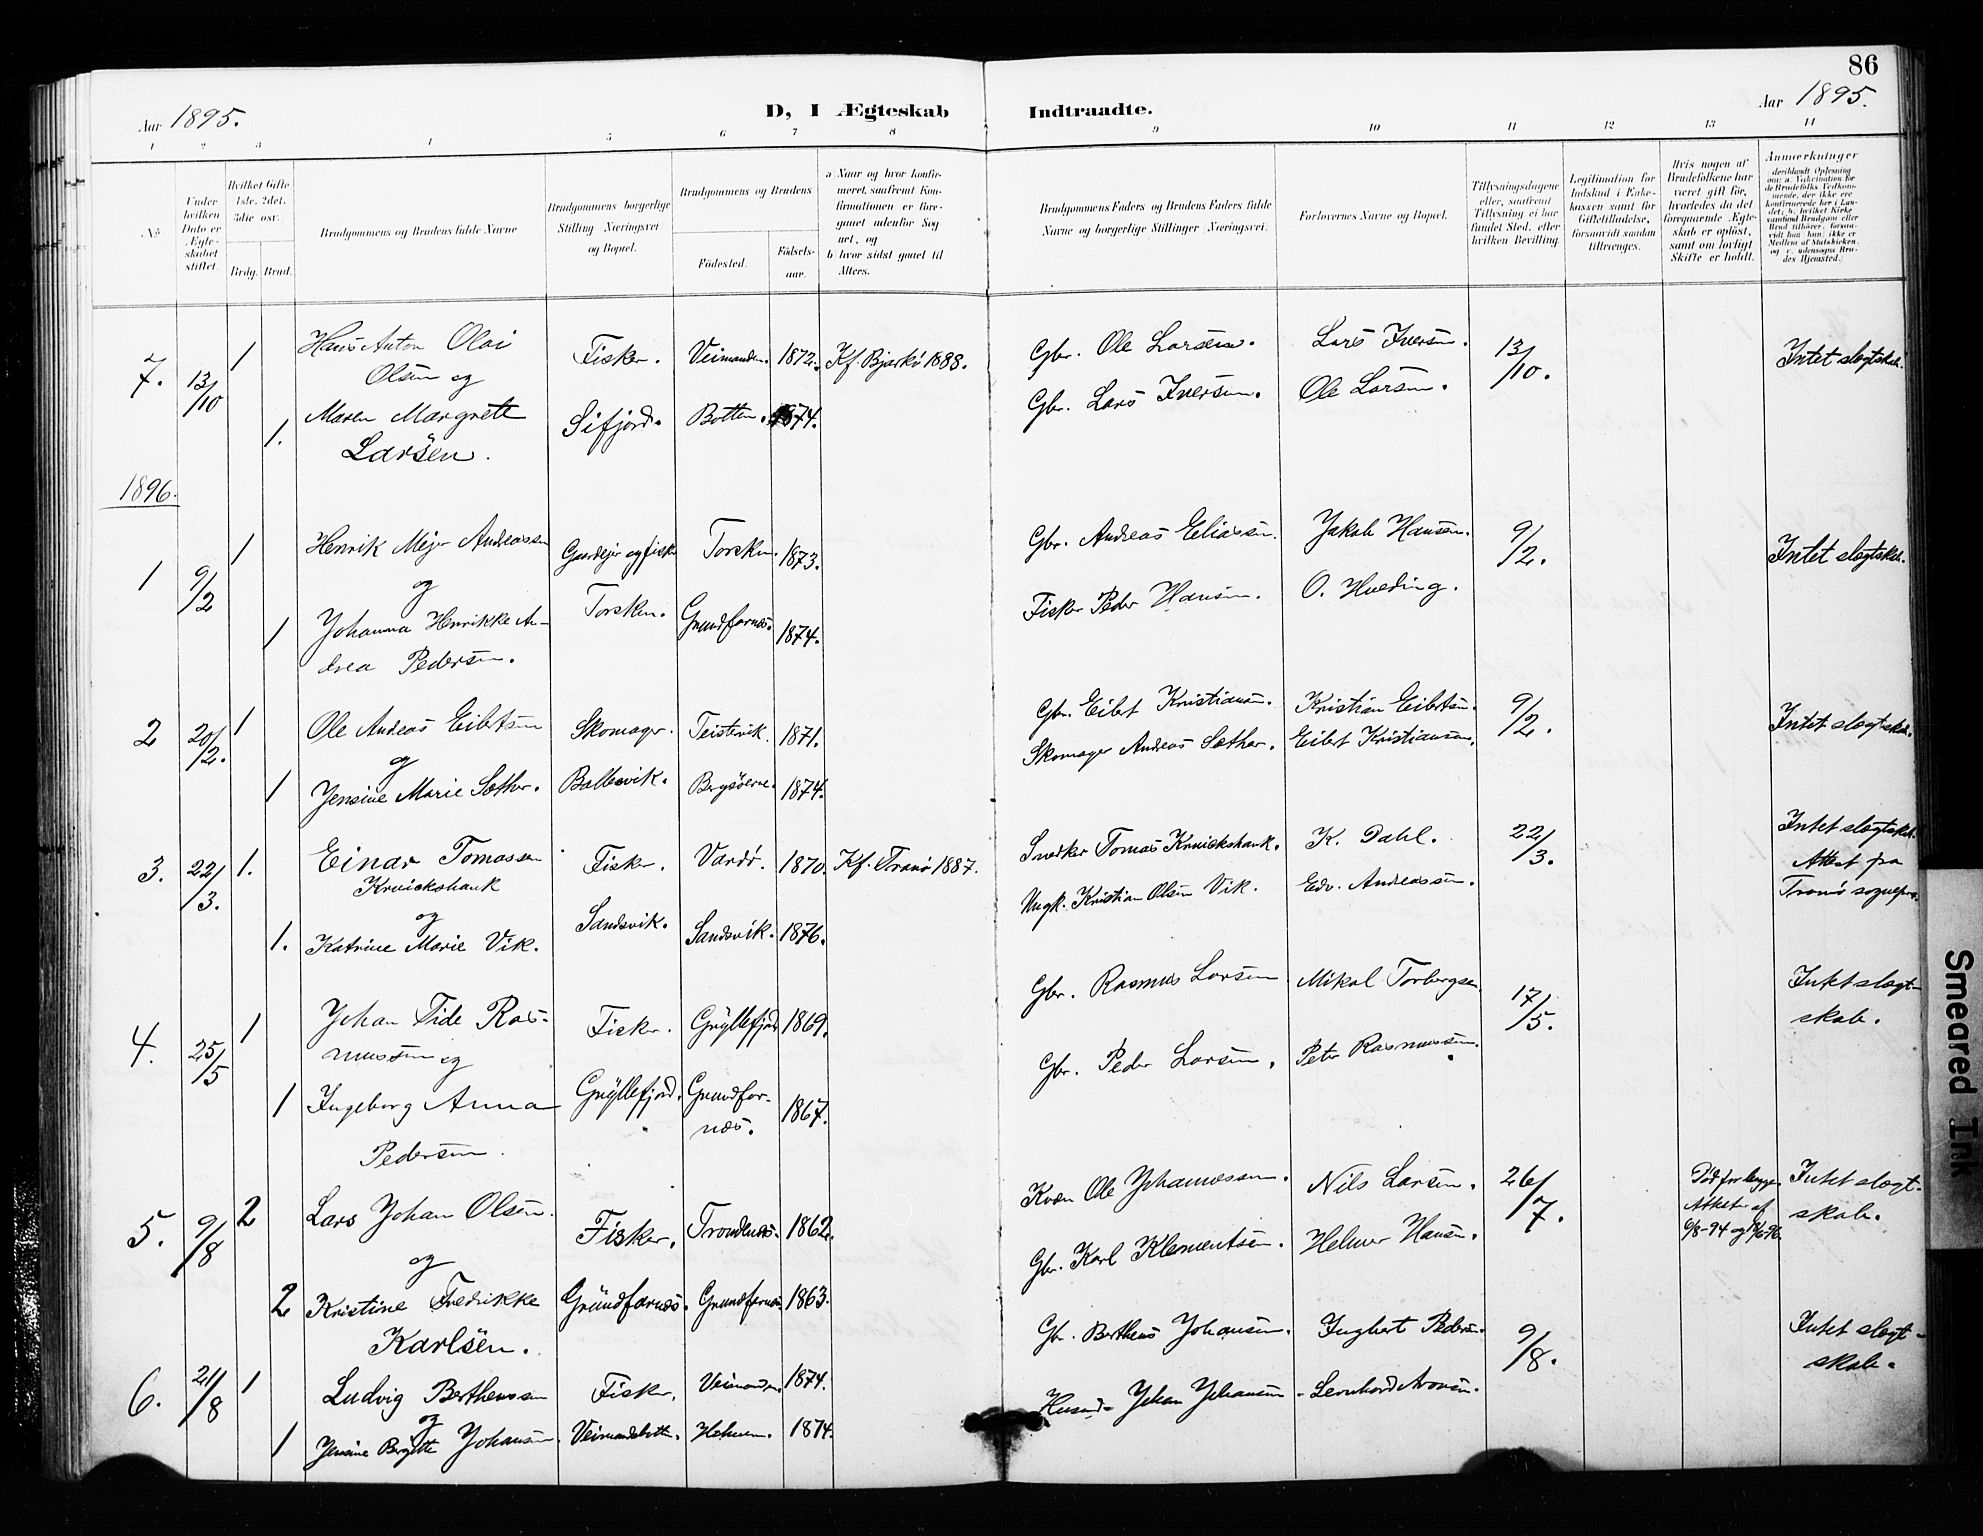 86
Aar 1895.
D, I Ægteskab Indtraadte.
Aar 1895.
1 2 3 4 5 6 7 8 9 10 11 12 13 14
No.
Under hvilken Dato er Ægteskabet stiftet.
Hvilket Gifte 1ste, 2det, 3die osv.
Brdg. Brud.
Brudgommens og Brudens fulde Navne
Brudgommens borgerlige Stilling Næringsvei og Bopæl.
Brudgommens og Brudens
Fødested.
Fødselsaar.
a Naar og hvor konfirmeret, saafremt Konfirmationen er foregaaet udenfor Sognet, og
b hvor sidst gaaet til Alters.
Brudgommens Faders og Brudens Faders fulde Navne og borgerlige Stillinger (Næringsvei.
Forlovernes Navne og Bopæl.
Tillysningsdagene eller, saafremt Tillysning ei har fundet Sted, efter hvilken Bevilling.
Legitimation for Indskud i Enkekassen samt for Giftetilladelse, forsaavidt saadan tiltrænges.
Hvis nogen af Brudefolkene har været gift før, hvorledes da det foregaaende Ægteskab er opløst, samt om lovligt Skifte er holdt.
Anmærkninger
7. 13/10 1 Hans Anton Olai Olsen og Fisker. Veimanden. 1872. Kf. Bjarkø 1888. Gbr. Ole Larsen. Lars Iversen. 13/10. Intet slægtskab.
1. Maren Margrete Larsen. Sifjord. Botten. 1874. Gbr. Lars Iversen. Ole Larsen.
1896.
1 9/2 1 Henrik Mejer Andreassen og Gaardejer og fisker Torsken. 1873. Gbr. Andreas Eliassen. Jakob Hansen. 9/2. Intet slægtskab.
1 Johanna Henrikke Andrea Pedersen. Torsken. Grundfarnes. 1874. Fisker Peder Hansen. O. Hveding.
2 20/2. 1 Ole Andreas Eibertsen og Skomager. Teistevik. 1871. Gbr. Eibert Kristiansen. Kristian Eibertsen. 9/2. Intet slægtskab.
1 Jensine Marie Sæther. Ballesvik. Bergsøerne. 1874. Skomager Andreas Sæther. Eibert Kristiansen.
3. 22/3. 1. Einar Tomassen Kruickshank og Fisker. Vardø. 1870. Kf. Tranø 1887. Snedker Tomas Kruickshank. K. Dahl. 22/3. Intet slægtskab. Attest fra Tranø sognepr.
1. Katrine Marie Vik. Sandsvik. Sandsvik. 1876. Ungk. Kristian Olsen Vik. Edv. Andreassen.
4. 25/5 1 Johan Tide Rasmussen og Fisker. Gryllefjord 1869. Gbr. Rasmus Larsen Mikal Torbergsen. 17/5. Intet slægtskab.
1 Ingeborg Anna Pedersen. Gryllefjord. Grundfarnes. 1867. Gbr. Peder Larsen. Peter Rasmussen.
5. 9/8 2 Lars Johan Olsen og Fisker. Trondenes. 1862. Kvæn Ole Johannessen. Nils Larsen. 26/7. Død for begge. Attester af 6/8-94 og Intet slægtskab.
2 Kristine Fredrikke Karlsen. Grundfarnes. Grundfarnes. 1863. Gbr. Karl Klementsen. Helmer Hansen.
6. 21/8 1 Ludvig Bertheussen og Fisker. Veimanden. 1874. Gbr. Bertheus Johansen. Ingbert Pedersen. 9/8. Intet slægtskab.
1 Jensine Bergitte Johansen Veimandsbotten. 1874. Husmd. Johan Johansen Leonhard Aronsen.
Smeared Ink